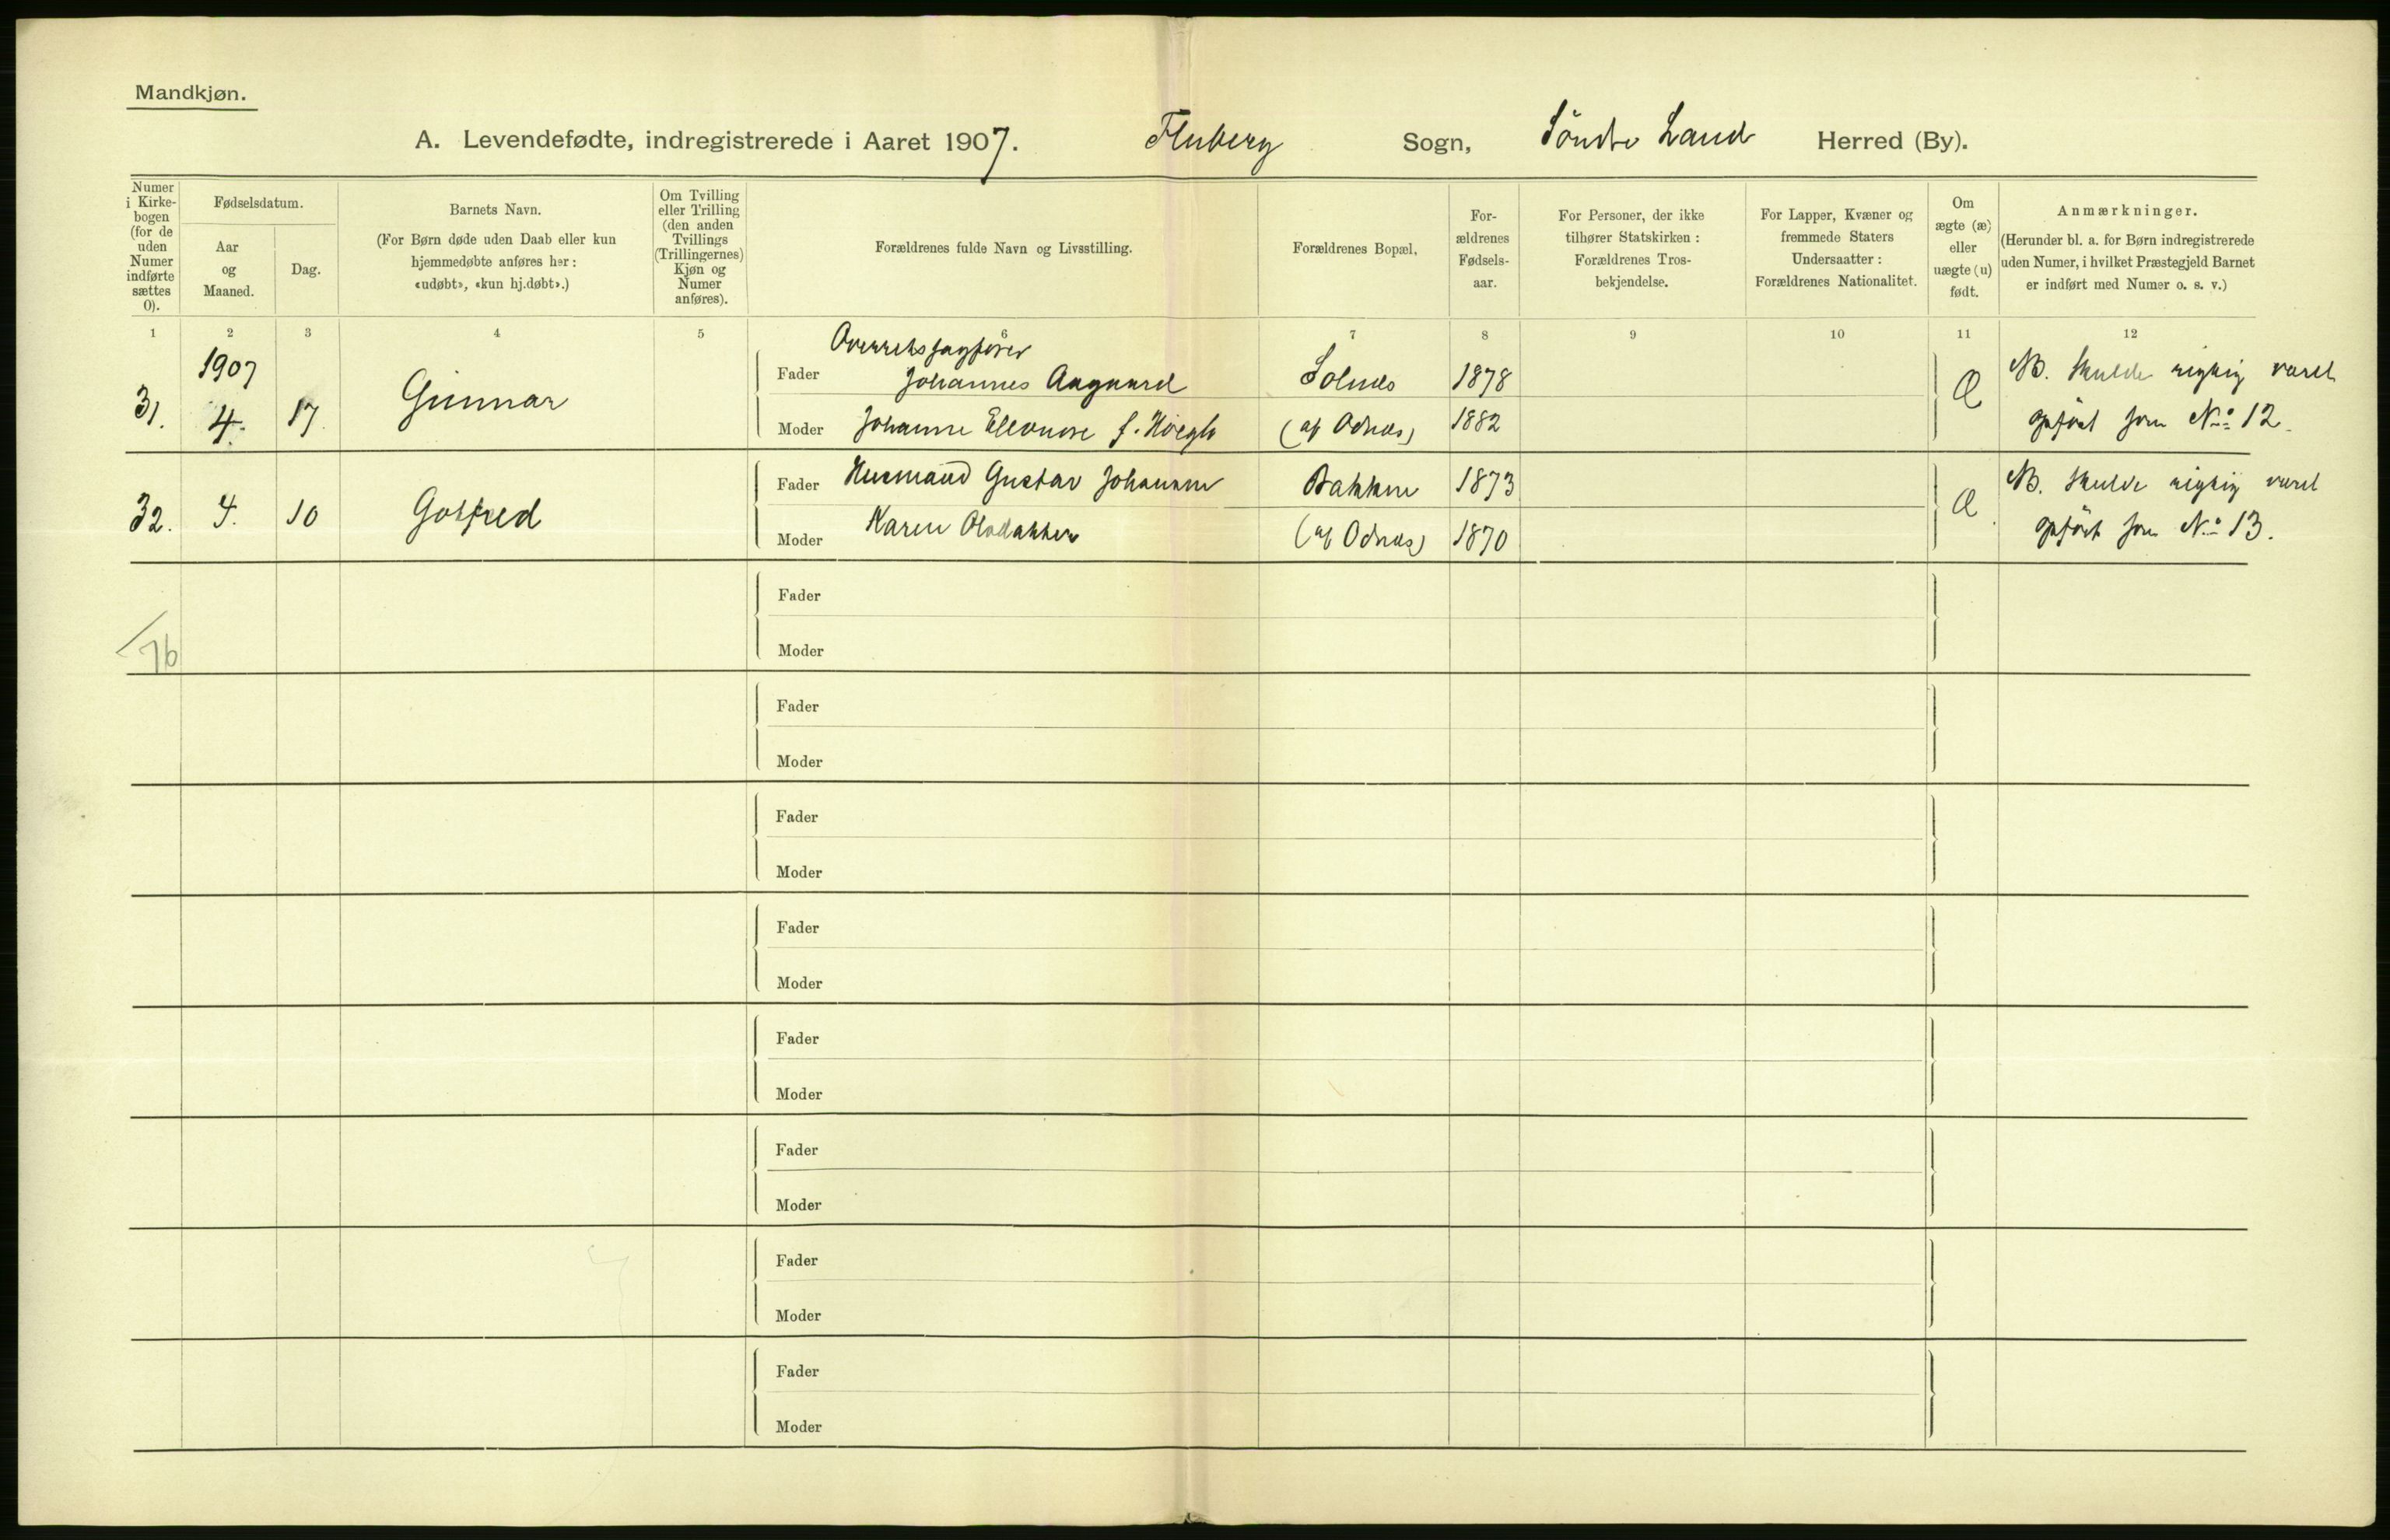 Mandkjøn.
A. Levendefødte, indregistrerede i Aaret 1907. Fluberg Sogn, Søndre Land Herred (By).
Numer
i Kirke-
bogen
(for de
uden
Numer
indførte
sættes
0).
Fødselsdatum.
Aar
og
Maaned.
Dag.
Barnets Navn.
(For Børn døde uden Daab eller kun
hjemmedøbte anføres her:
«udøbt», «kun hj.døbt».)
Om Tvilling
eller Trilling
(den anden
Tvillings
(Trillingernes)
Kjøn og
Numer
anføres).
Forældrenes fulde Navn og Livsstilling.
Forældrenes Bopæl.
For-
ældrenes
Fødsels-
aar.
For Personer, der ikke
tilhører Statskirken:
Forældrenes Tros-
bekjendelse.
For Lapper, Kvæner og
fremmede Staters
Undersaatter:
Forældrenes Nationalitet.
Om
ægte (æ)
eller
uægte (u)
født.
Anmærkninger.
(Herunder bl. a. for Børn indregistrerede
uden Numer, i hvilket Præstegjeld Barnet
er indført med Numer o. s. v.)
1 2 3 4 5 6 7 8 9 10 11 12
31. 1907 4. 17. Gunnar
Overretssagfører
Fader Johannes Aagaard Solnes 1878
Moder Johanne Eleonore f. Høegh (af Odnæs) 1882
Æ
NB. Skulde rigtig været
opført som No. 12.
32. 4. 10 Gotfred
Fader Husmand Gustav Johansen Bakken 1873
Moder Karen (af Odnæs) 1870
Æ
NB. Skulde rigtig været
opført som No. 13.
Fader
Moder
76
Fader
Moder
Fader
Moder
Fader
Moder
Fader
Moder
Fader
Moder
Fader
Moder
Fader
Moder